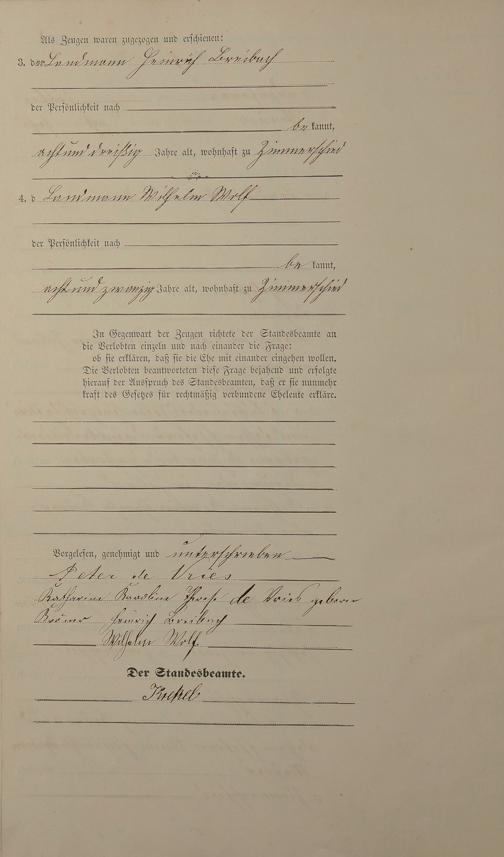 Als Zeugen waren zugezogen und erschienen:
3. der Landmann Heinrich Breibach
der Persönlichkeit nach
be kannt,
acht und dreißig Jahre alt, wohnhaft zu Zimmerschied
4. d Landmann Wilhelm Wolf
der Persönlichkeit nach
be kannt,
acht und zwanzig Jahre alt, wohnhaft zu Zimmerschied
In Gegenwart der Zeugen richtete der Standesbeamte an
die Verlobten einzeln und nach einander die Frage:
ob sie erklären, daß sie die Ehe mit einander eingehen wollen.
Die Verlobten beantworteten diese Frage bejahend und erfolgte
hierauf der Ausspruch des Standesbeamten, daß er sie nunmehr
kraft des Gesetzes für rechtmäßig verbundene Eheleute erkläre.
Vorgelesen, genehmigt und unterschrieben
Peter de Vries
Katharine Karoline de Vries geborne
Heinrich Breibach
Wilhelm Wolf
Der Standesbeamte.